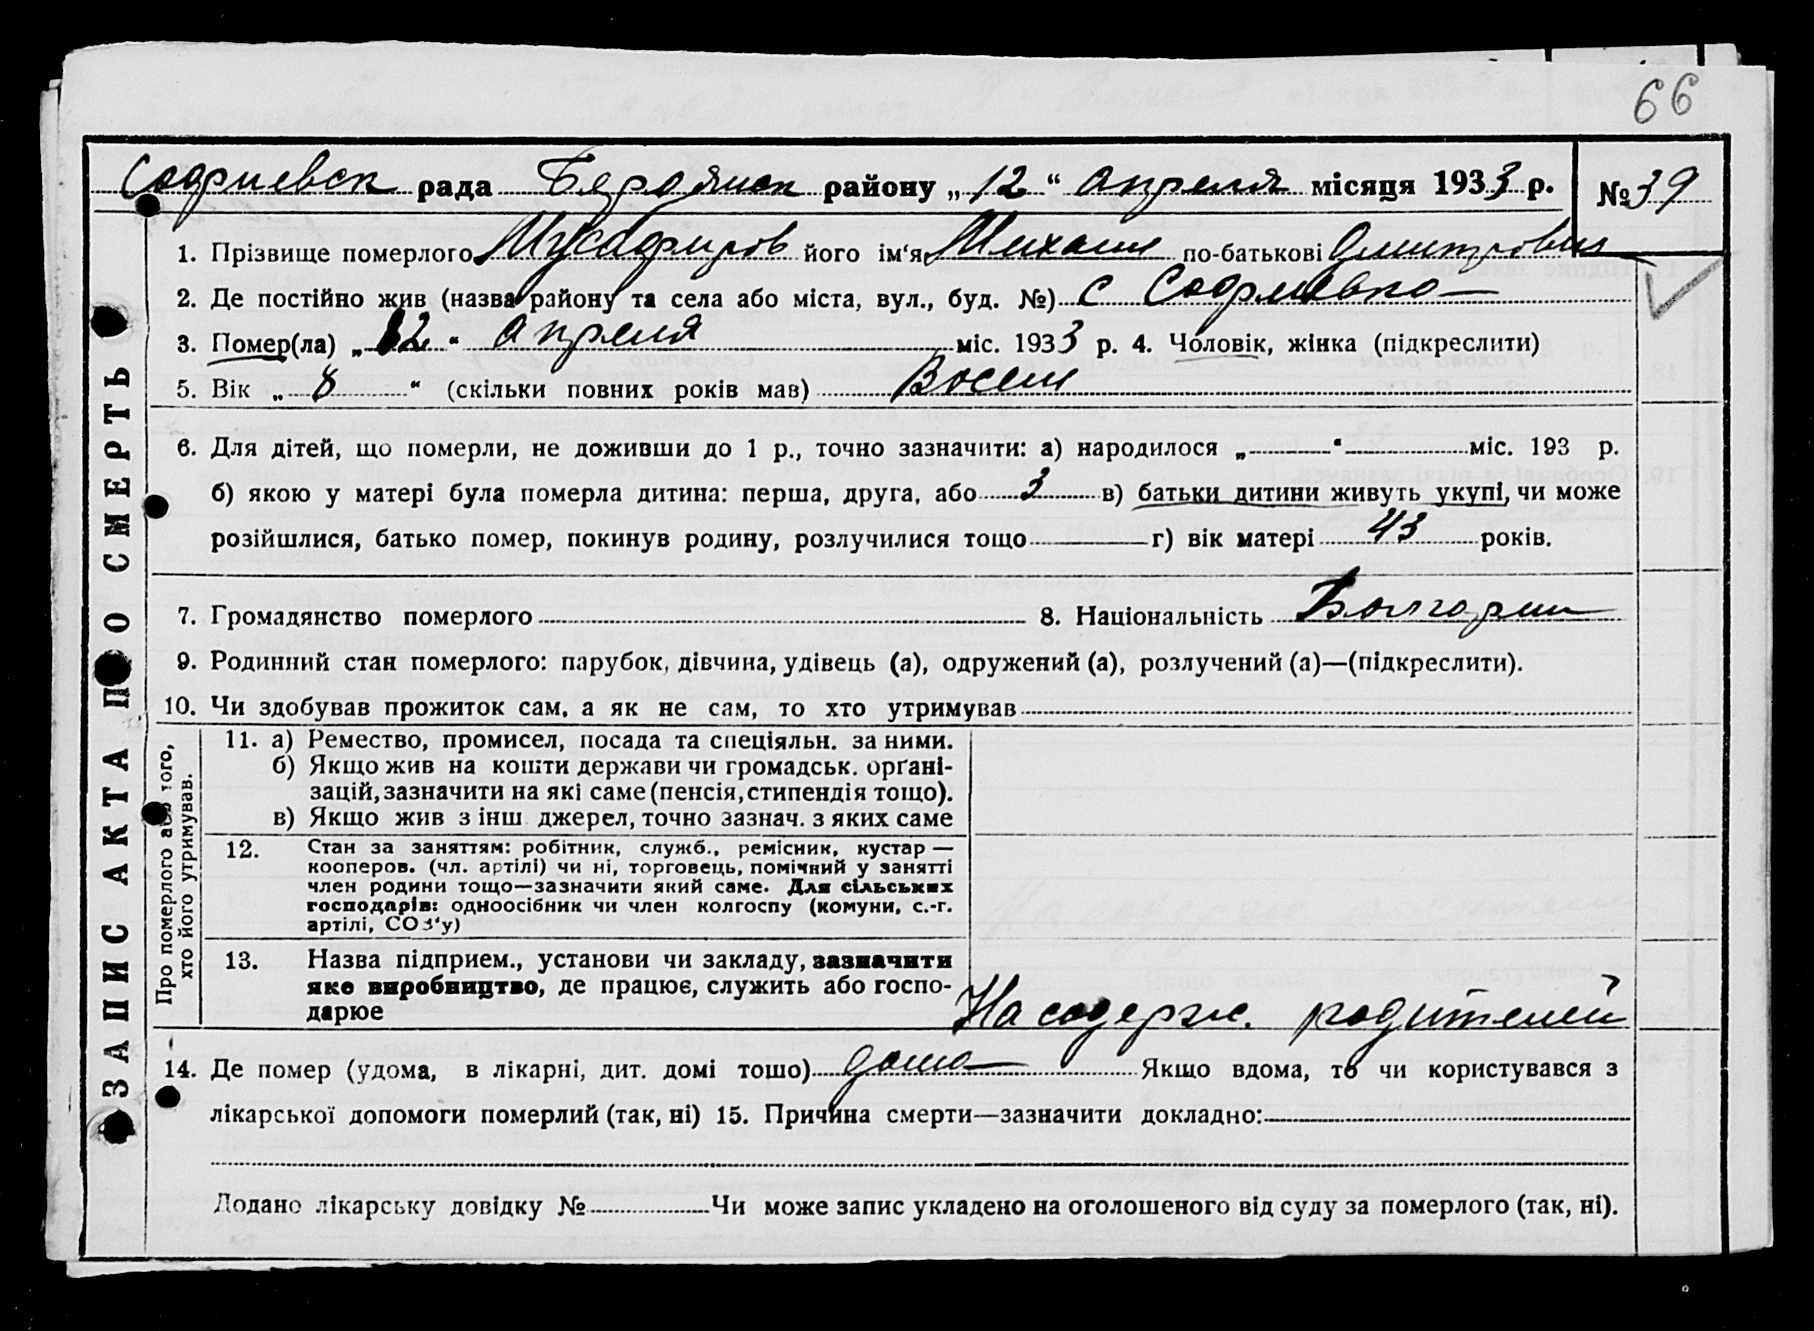 66
Софиевск рада Бердянск району „12“ апреля місяця 1933 р. № 39
1. Прізвище померлого Мусафиров його ім‘я Михаил по-батькові Дмитрович
2. Де постійно жив (назва району та села або міста, вул., буд. №) с Софиевка
3. Помер(ла) „12“ апреля міс. 1933 р. 4. Чоловік, жінка (підкреслити)
5. Вік „8“ (скільки повних років мав) Восем
6. Для дітей, що померли, не доживши до 1 р., точно зазначити: а) народилося „—“ — міс. 193 р.
б) якою у матері була померла дитина: перша, друга, або 3 в) батьки дитини живуть укупі, чи може
розійшлися, батько помер, покинув родину, розлучилися тощо — г) вік матері 43 років.
7. Громадянство померлого 8. Національність Болгарин
9. Родинний стан померлого: парубок, дівчина, удівець (а), одружений (а), розлучений (а)—(підкреслити).
10. Чи здобував прожиток сам, а як не сам, то хто утримував
ЗАПИС АКТА ПРО СМЕРТЬ
Про померлого або того,
хто його утримував.
11. а) Ремество, промисел, посада та спеціяльн. за ними.
б) Якщо жив на кошти держави чи громадськ. орґані-
зацій, зазначити на які саме (пенсія, стипендія тощо).
в) Якщо жив з інш. джерел, точно зазнач. з яких саме
12. Стан за заняттям: робітник, служб., ремісник, кустар —
кооперов. (чл. артілі) чи ні, торговець, помічний у занятті
член родини тощо—зазначити який саме. Для сільських
господарів: одноосібник чи член колгоспу (комуни, с.-г.
артілі, СОЗ‘у)
13. Назва підприєм., установи чи закладу, зазначити
яке виробництво, де працює, служить або госпо-
дарює На содерж. родителей
14. Де помер (удома, в лікарні, дит. домі тощо) дома Якщо вдома, то чи користувався з
лікарської допомоги померлий (так, ні) 15. Причина смерти—зазначити докладно:
Додано лікарську довідку № Чи може запис укладено на оголошеного від суду за померлого (так, ні).